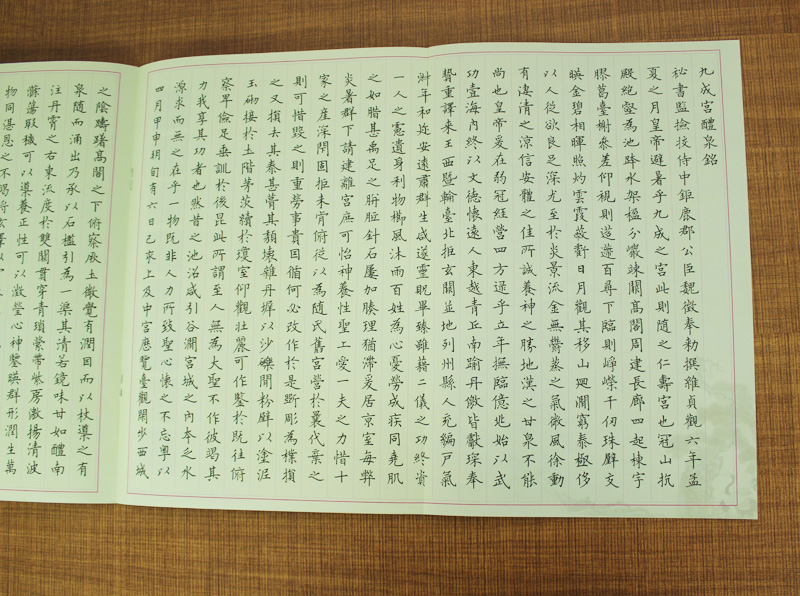 九成宮醴泉銘
秘書監撿挍侍中鉅鹿郡公臣魏徵奉勅撰維貞觀六年孟
夏之月皇帝避暑乎九成之宮此則隨之仁壽宮也冠山抗
殿絕壑為池跨水架楹分巖竦闕高閣周建長廊四起棟宇
膠葛臺榭參差仰視則迢遰百尋下臨則崢嶸千仞珠璧交
暎金碧相暉照灼雲霞蔽虧日月觀其移山迴澗窮泰極侈
以人從欲良足深尤至於炎景流金無鬱蒸之氣微風徐動
有淒清之涼信安體之佳所誠養神之勝地漢之甘泉不能
尚也皇帝爰在弱冠經營四方逮乎立年撫臨億兆始以武
功壹海內終以文德懷遠人東越青丘南踰丹徼皆獻琛奉
贄重譯來王西暨輪臺北拒玄闕並地列州縣人充編戶氣
淑年和迩安遠肅群生咸遂靈貺畢臻雖藉二儀之功終資
一人之慮遺身利物櫛風沐雨百姓為心憂勞成疾同堯肌
之如腊甚禹足之胼胝針石屢加腠理猶滯爰居京室每弊
炎暑群下請建離宮庶可怡神養性聖上愛一夫之力惜十
家之產深閉固拒未肯俯從以為隨氏舊宮營於曩代棄之
則可惜毀之則重勞事貴因循何必改作於是斲彫為樸損
之又損去其泰甚葺其頹壞雜丹墀以沙礫間粉壁以塗泥
玉砌接於土階茅茨續於瓊室仰觀壯麗可作鑒於既往俯
察卑儉足垂訓於後昆此所謂至人無為大聖不作彼竭其
力我享其功者也然昔之池沼咸引谷澗宮城之內本乏水
源求而無之在乎一物既非人力所致聖心懷之不忘粵以
四月甲申朔旬有六日己亥上及中宮歷覽臺觀閑步西城
之陰躊躇高閣之下俯察厥土微覺有潤因而以杖導之有
泉隨而涌出乃承以石檻引為一渠其清若鏡味甘如醴南
注丹霄之右東流度於雙闕貫穿青瑣縈帶紫房激揚清波
滌蕩瑕穢可以導養正性可以澂瑩心神鑒暎群形潤生萬
物同湛恩之不竭將玄澤